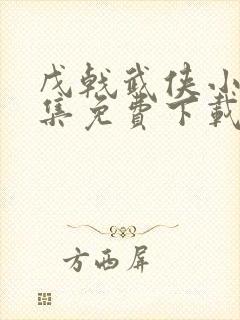 戊戟武侠小
集免费下载
方西屏